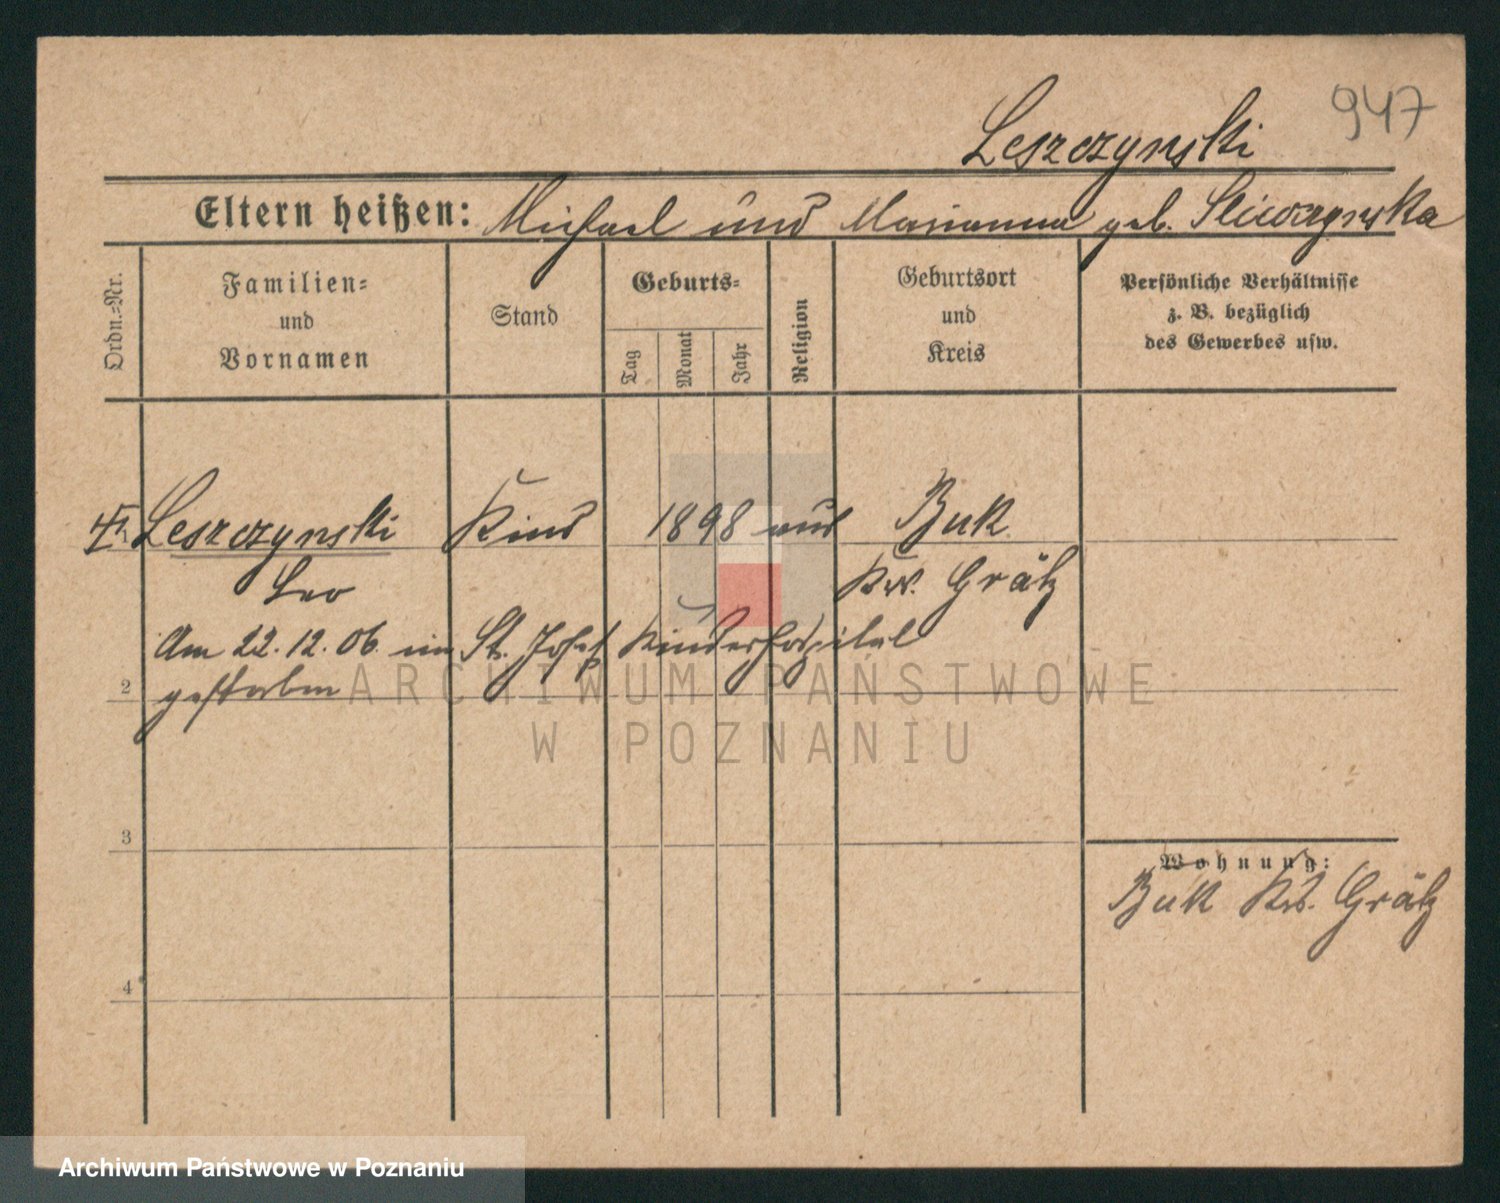 947
Leszczynski
Eltern heißen: Michael und Marianna geb. Sliwczynska
Ordn.=Nr.
Familien= und Vornamen
Stand
Geburts=
Tag
Monat
Jahr
Religion
Geburtsort und Kreis
Persönliche Verhältnisse
z. B. bezüglich
des Gewerbes usw.
Leszczynski Kind 1898 aus Buk
Leo Krs. Grätz
Am 22. 12. 06 im St. Josef Kinderhospital
2 gestorben
3
Wohnung:
Buk Krs. Grätz
4
ARCHIWUM PAŃSTWOWE
W POZNANIU
Archiwum Państwowe w Poznaniu